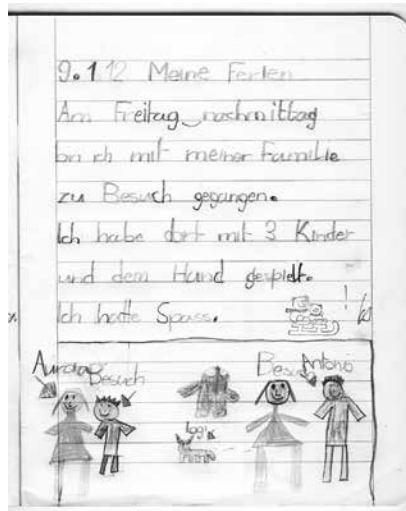 9.1.12 Meine Ferien
Am Freitag nachmittag
bin ich mit meiner Familie
zu Besuch gegangen.
Ich habe dort mit 3 Kinder
und dem Hund gespielt.
Ich hatte Spass. !
Aurora Besuch Besuch Antonio
Logi